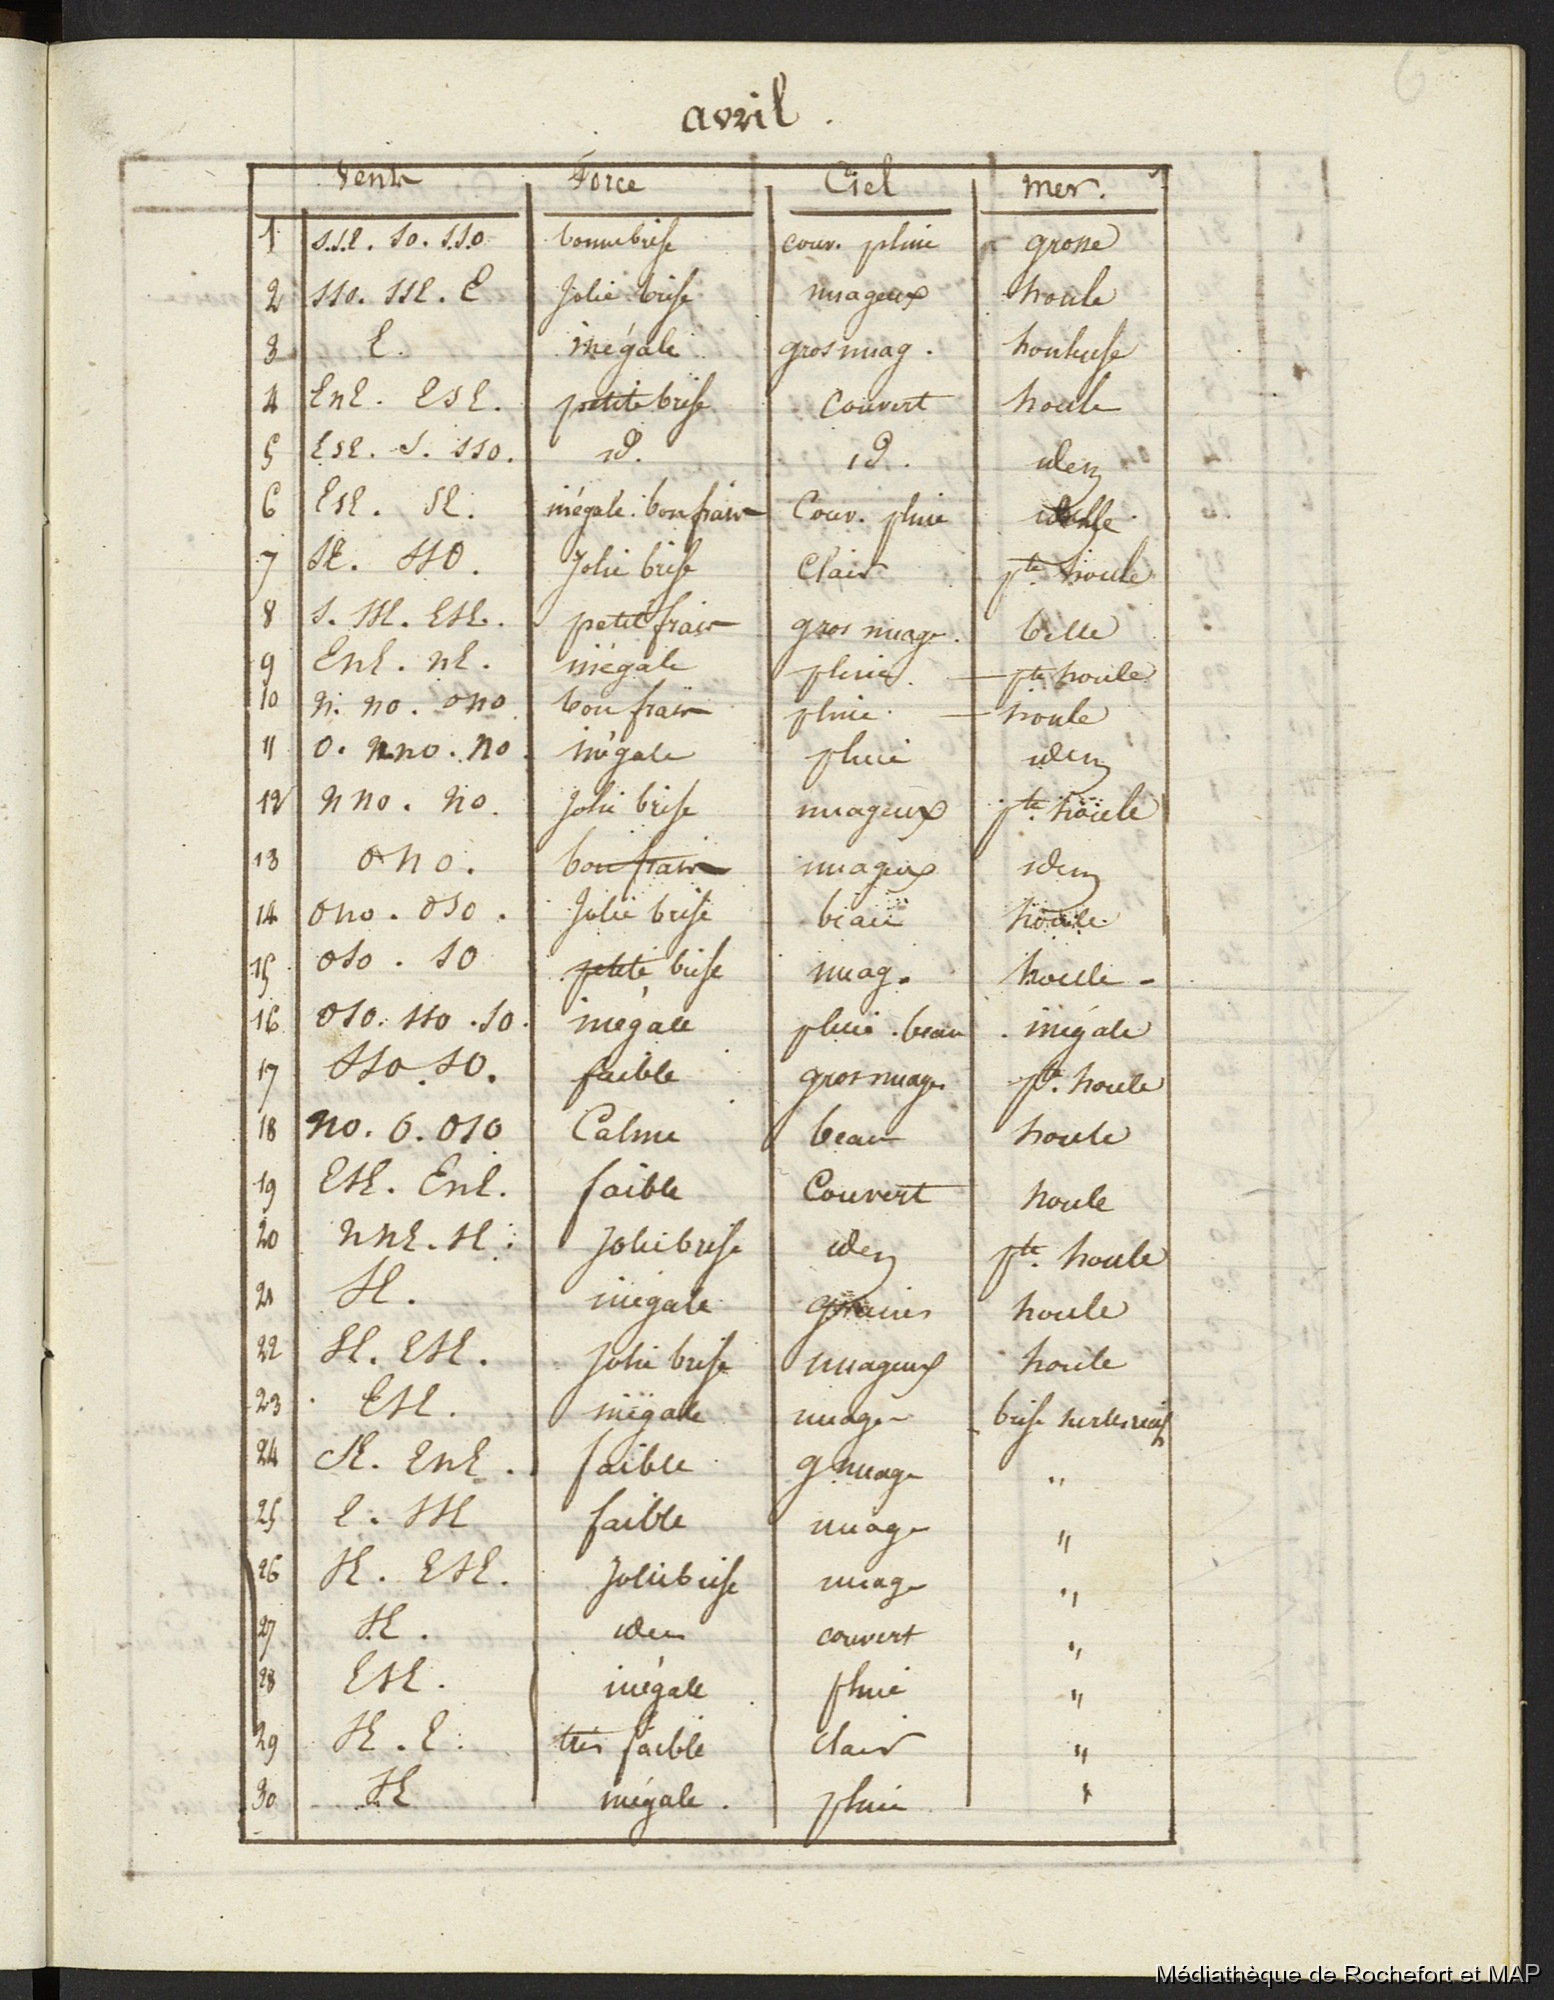 6
avril.
Vents Force Ciel mer.
1 S.S.E. SO. S.S.O bonne brise couv. pluie grosse
2 SSO. SSE. E Jolie brise nuageux houle
3 E. inégale gros nuag. houleuse
4 EnE. ESE. petite brise couvert houle
5 ESE. S. SSO. id. id. idem
6 ESE. SE. inégale. bon frais Couv. pluie
7 SE. SSO. Jolie brise Clair pte houle
8 S. SSE. ESE. petit frais gros nuage. belle
9 EnE. nE. inégale pluie. pte houle
10 n. no. ono bon frais pluie. houle
11 O. nno. no. inégale pluie idem
12 nno. no. Jolie brise nuageux pte houle
13 ono. bon frais nuageux idem
14 ono. OSO. Jolie brise beau houle
15 OSO. SO petite brise nuag. houle
16 OSO. SSO. SO. inégale pluie. beau inégale
17 SSO. SO. faible gros nuages pte houle
18 no. O. OSO Calme beau houle
19 ESE. EnE. faible Couvert houle
20 nnE. SE. Jolie brise idem pte houle
21 SE. inégale grains houle
22 SE. ESE. Jolie brise nuageux houle
23 ESE. inégale nuage brise sur les récifs
24 SE. EnE. faible g. nuage "
25 E. SSE faible nuage "
26 SE. ESE. Jolie brise nuage "
27 SE. idem couvert "
28 ESE. inégale pluie "
29 SE. E. très faible clair "
30 SE inégale. pluie "
Médiathèque de Rochefort et MAP